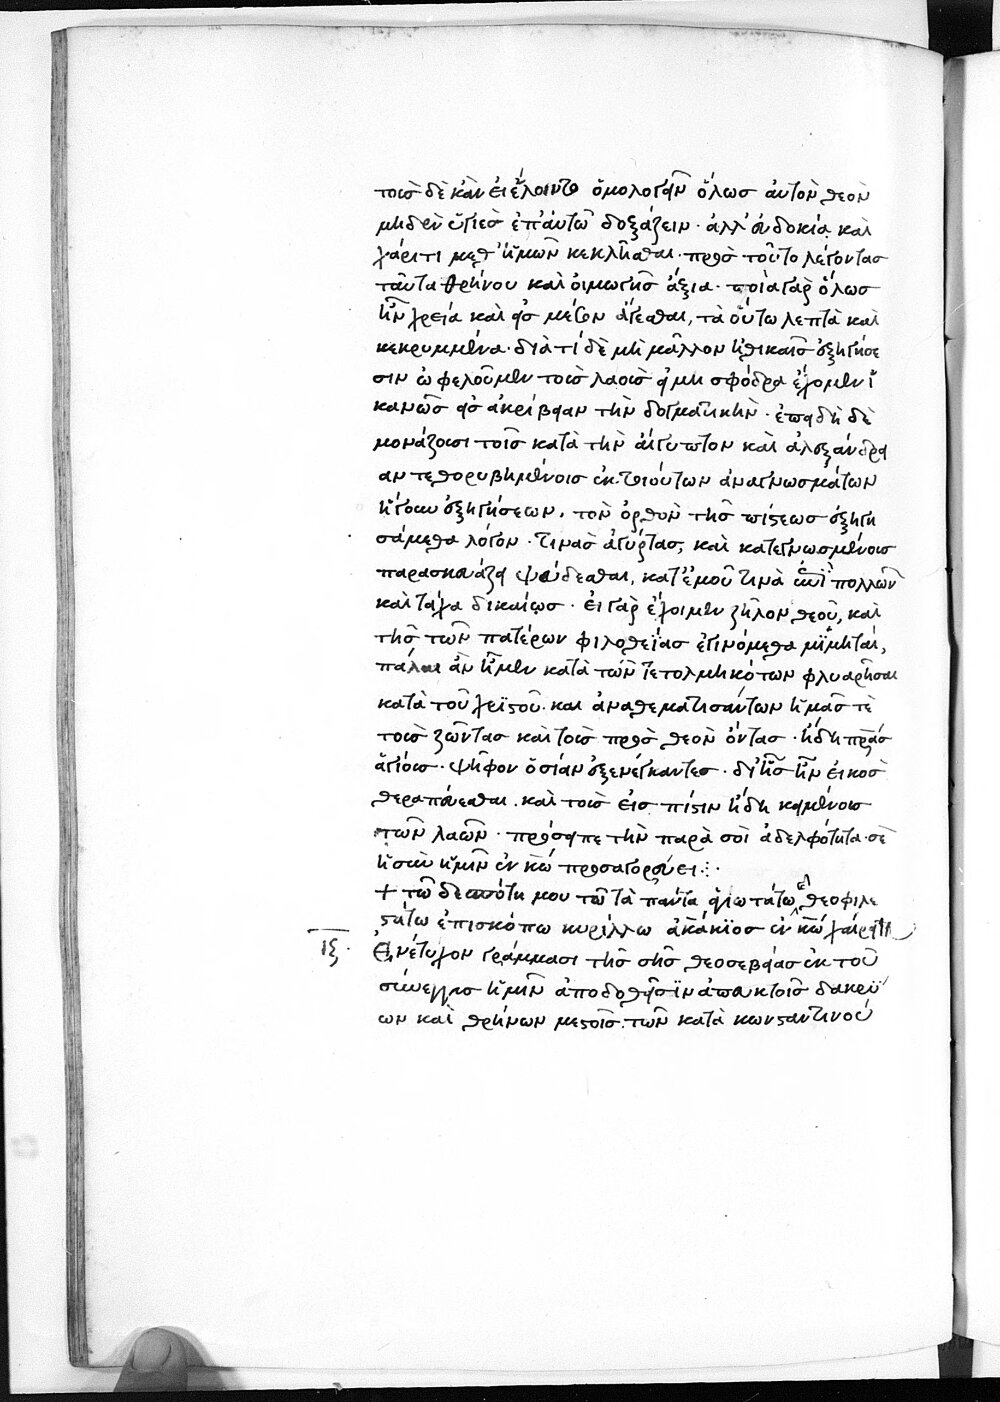 τοῖς δὲ κἂν εἰ ἕλοιντο ὁμολογεῖν ὅλως αὐτὸν θεὸν
μηδὲν ὑγιὲς ἐπ' αὐτῷ δοξάζειν · ἀλλ' εὐδοκίᾳ καὶ
χάριτι μεθ' ἡμῶν κεκλῆσθαι · πρὸς τοῦτο λέγοντας
ταῦτα θρήνου καὶ οἰμωγῆς ἄξια · ποία γὰρ ὅλως
ἦν χρεία καὶ εἰς μέσον ἄγεσθαι, τὰ οὕτω λεπτὰ καὶ
κεκρυμμένα · διὰ τί δὲ μὴ μᾶλλον ἠθικαῖς ἐξηγήσε
σιν ὠφελοῦμεν τοὺς λαοὺς εἰ μὴ σφόδρα ἔχομεν ἱ
κανῶς εἰς ἀκρίβειαν τὴν δογματικὴν · ἐπειδὴ δὲ
μονάζουσι τοῖς κατὰ τὴν αἴγυπτον καὶ ἀλεξάνδρει
αν τεθορυβημένοις ἐκ τοιούτων ἀναγνωσμάτων
ἤγουν ἐξηγήσεων, τὸν ὀρθὸν τῆς πίστεως ἐξηγη
σάμεθα λόγον · τινὰς ἀγύρτας, καὶ κατεγνωσμένους
παρασκευάζει ψεύδεσθαι, κατ' ἐμοῦ τινὰ ἐπὶ πολλῶν
καὶ τάχα δικαίως · εἰ γὰρ ἔχοιμεν ζῆλον θεοῦ, καὶ
τῆς τῶν πατέρων φιλοθεΐας ἐγινόμεθα μϊμηταί,
πάλαι ἂν ἦμεν κατὰ τῶν τετολμηκότων φλυαρῆσαι
κατὰ τοῦ χριστοῦ · και ἀναθεματισάντων ἡμᾶς τὲ
τοὺς ζῶντας καὶ τοὺς πρὸς θεὸν ὄντας · ἤδη πρας
ἁγίους · ψῆφον ὁσίαν ἐξενέγκαντες · δι' ἧς ἦν εἰκὸς
θεραπεύεσθαι · καὶ τοὺς εἰς πίστιν ἤδη κειμένους
τῶν λαῶν · πρόσειπε τὴν παρὰ σοὶ ἀδελφότητα · σὲ
ἡ σὺν ἡμῖν ἐν κῶ προσαγορεύει ⁝ ·
+ τῷ δεσπότῃ μου τῷ τὰ πάντα ἁγιωτάτω θεοφιλε
στάτω ἐπισκόπω κυρίλλω ἀκάκϊος ἐν κῶ χαίρειν
ιξ · Ἐνέτυχον γράμμασι τῆς σῆς θεοσεβείας ἐκ τοῦ
σύνεγγυς ἡμῖν ἀποδοθεῖσϊν ἅπασι τοῖς δακρύ
ων καὶ θρήνων μεστοῖς · τῶν κατὰ κωνσταντινού